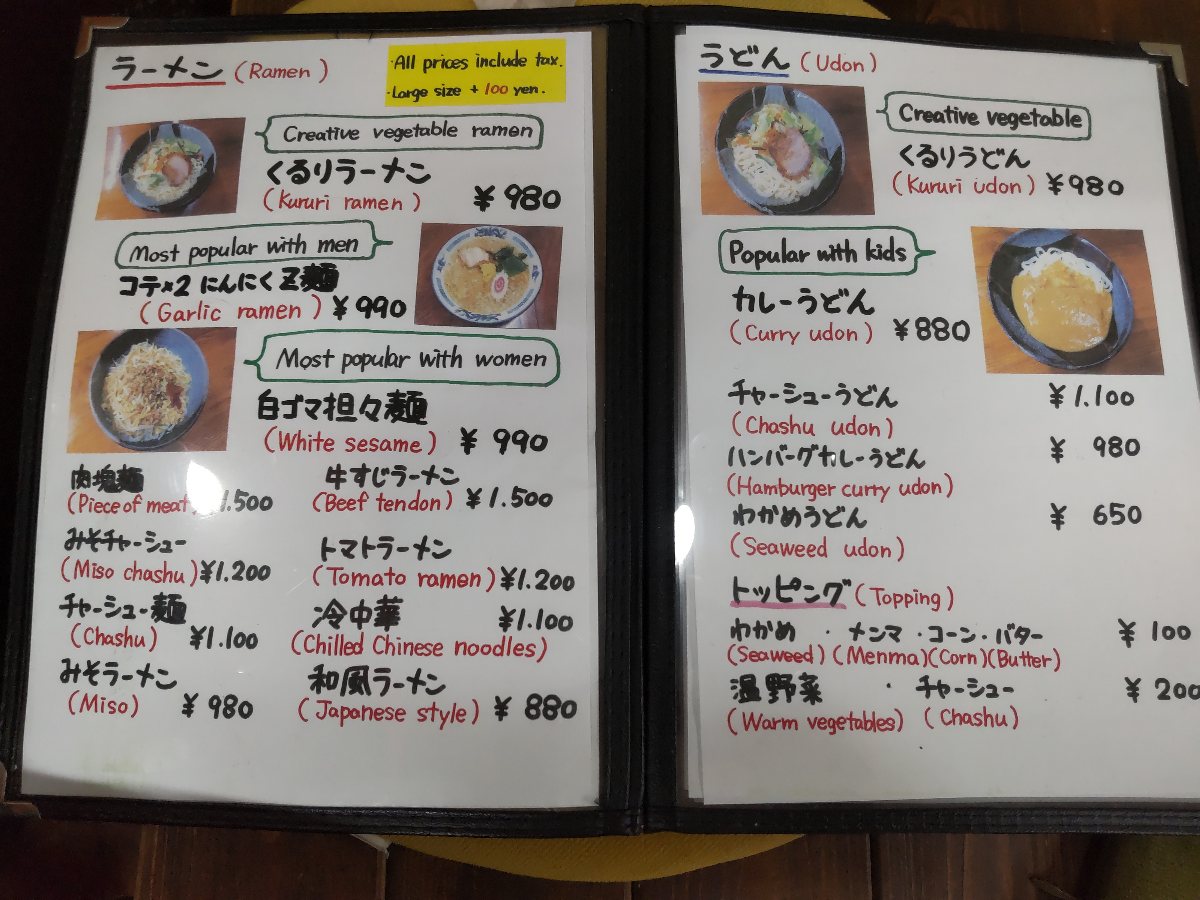 ラーメン (Ramen)
・All prices include tax.
・Large size + 100 yen.
Creative vegetable ramen
くるりラーメン
(Kururi ramen) ¥980
Most popular with men
コテ×2 にんにく Z麺
(Garlic ramen) ¥990
Most popular with women
白ゴマ担々麺
(White sesame) ¥990
肉塊麺
(Piece of meat) 1.500
牛すじラーメン
(Beef tendon) ¥1.500
みそチャーシュー
(Miso chashu) ¥1.200
トマトラーメン
(Tomato ramen) ¥1.200
チャーシュー麺
(Chashu) ¥1.100
冷中華 ¥1.100
(Chilled Chinese noodles)
みそラーメン
(Miso) ¥980
和風ラーメン
(Japanese style) ¥880
うどん (Udon)
Creative vegetable
くるりうどん
(Kururi udon) ¥980
Popular with kids
カレーうどん
(Curry udon) ¥880
チャーシューうどん ¥1.100
(Chashu udon)
ハンバーグカレーうどん ¥980
(Hamburger curry udon)
わかめうどん ¥650
(Seaweed udon)
トッピング (Topping)
わかめ・メンマ・コーン・バター ¥100
(Seaweed) (Menma) (Corn) (Butter)
温野菜・チャーシュー ¥200
(Warm vegetables) (Chashu)